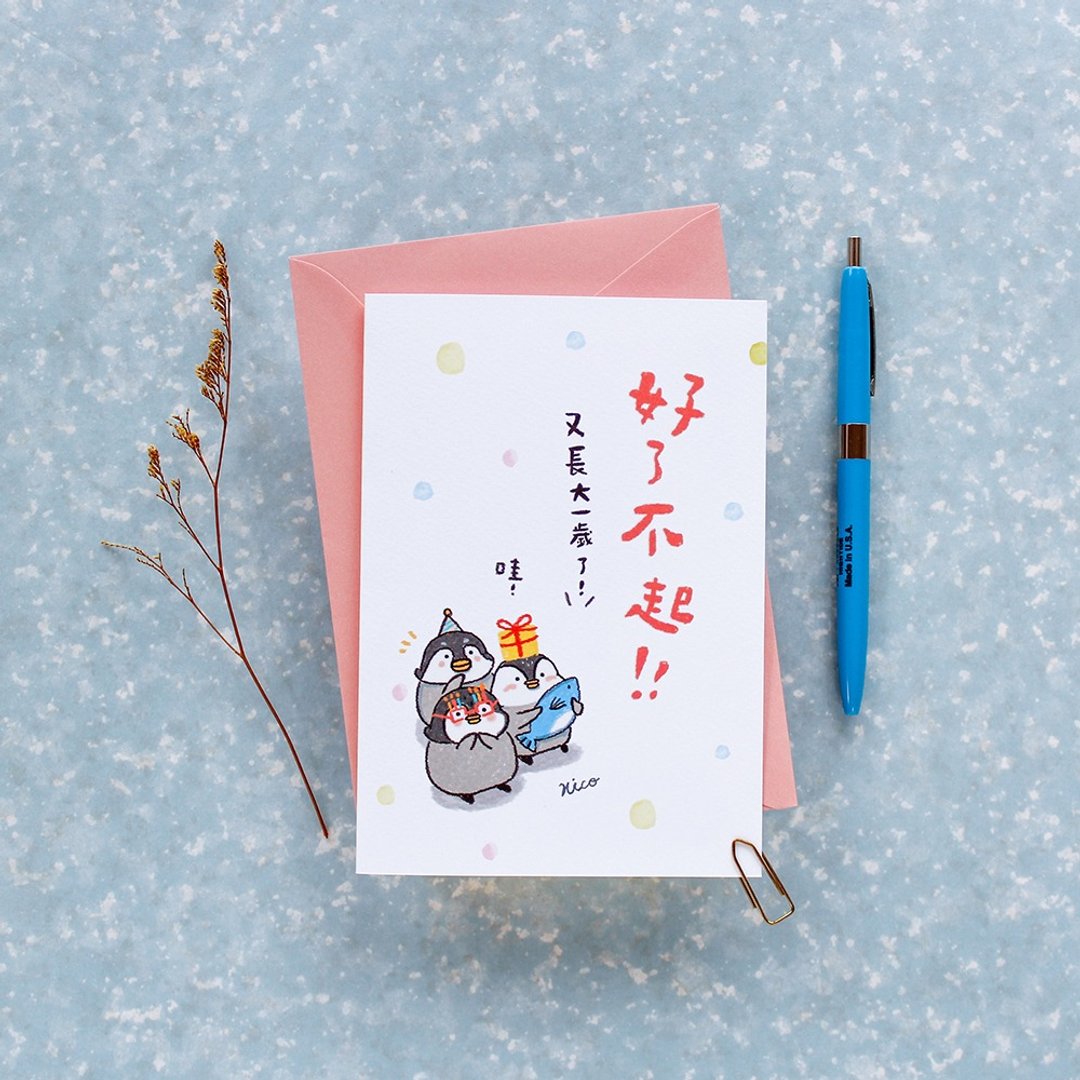 好了不起!!
又長大一歲了!
哇!
Nico
Made in U.S.A.